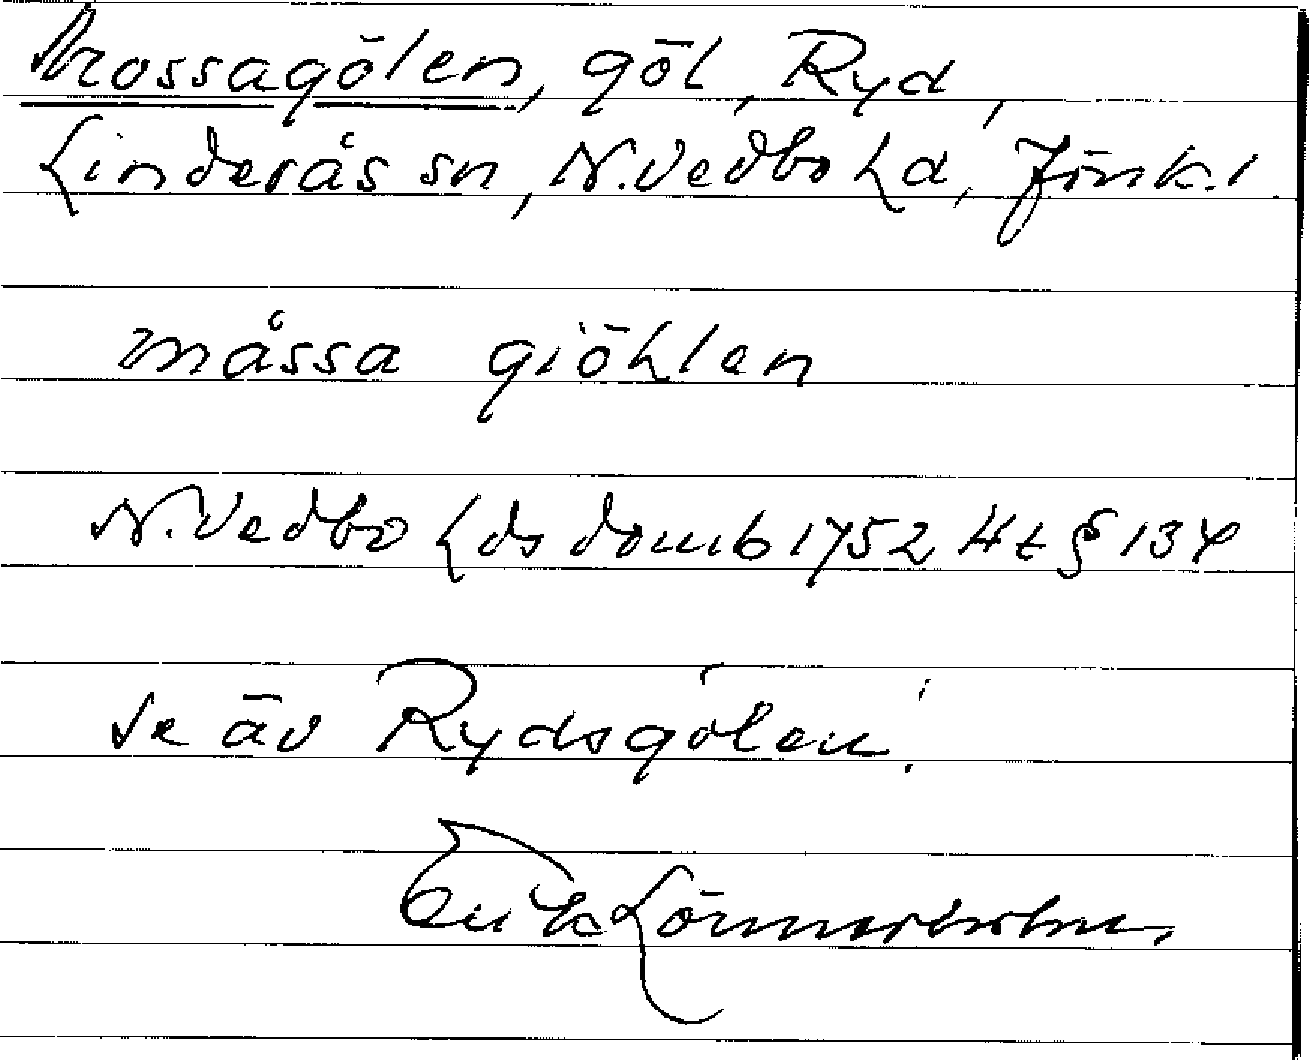 Mossagölen, göl, Ryd,
Linderås sn, N. Vedbo hd, Jönk. l
måssa giöhlen
N. Vedbo hds domb 1752 Ht § 134
Se äv Rydsgölen!
Erik Lönnerholm